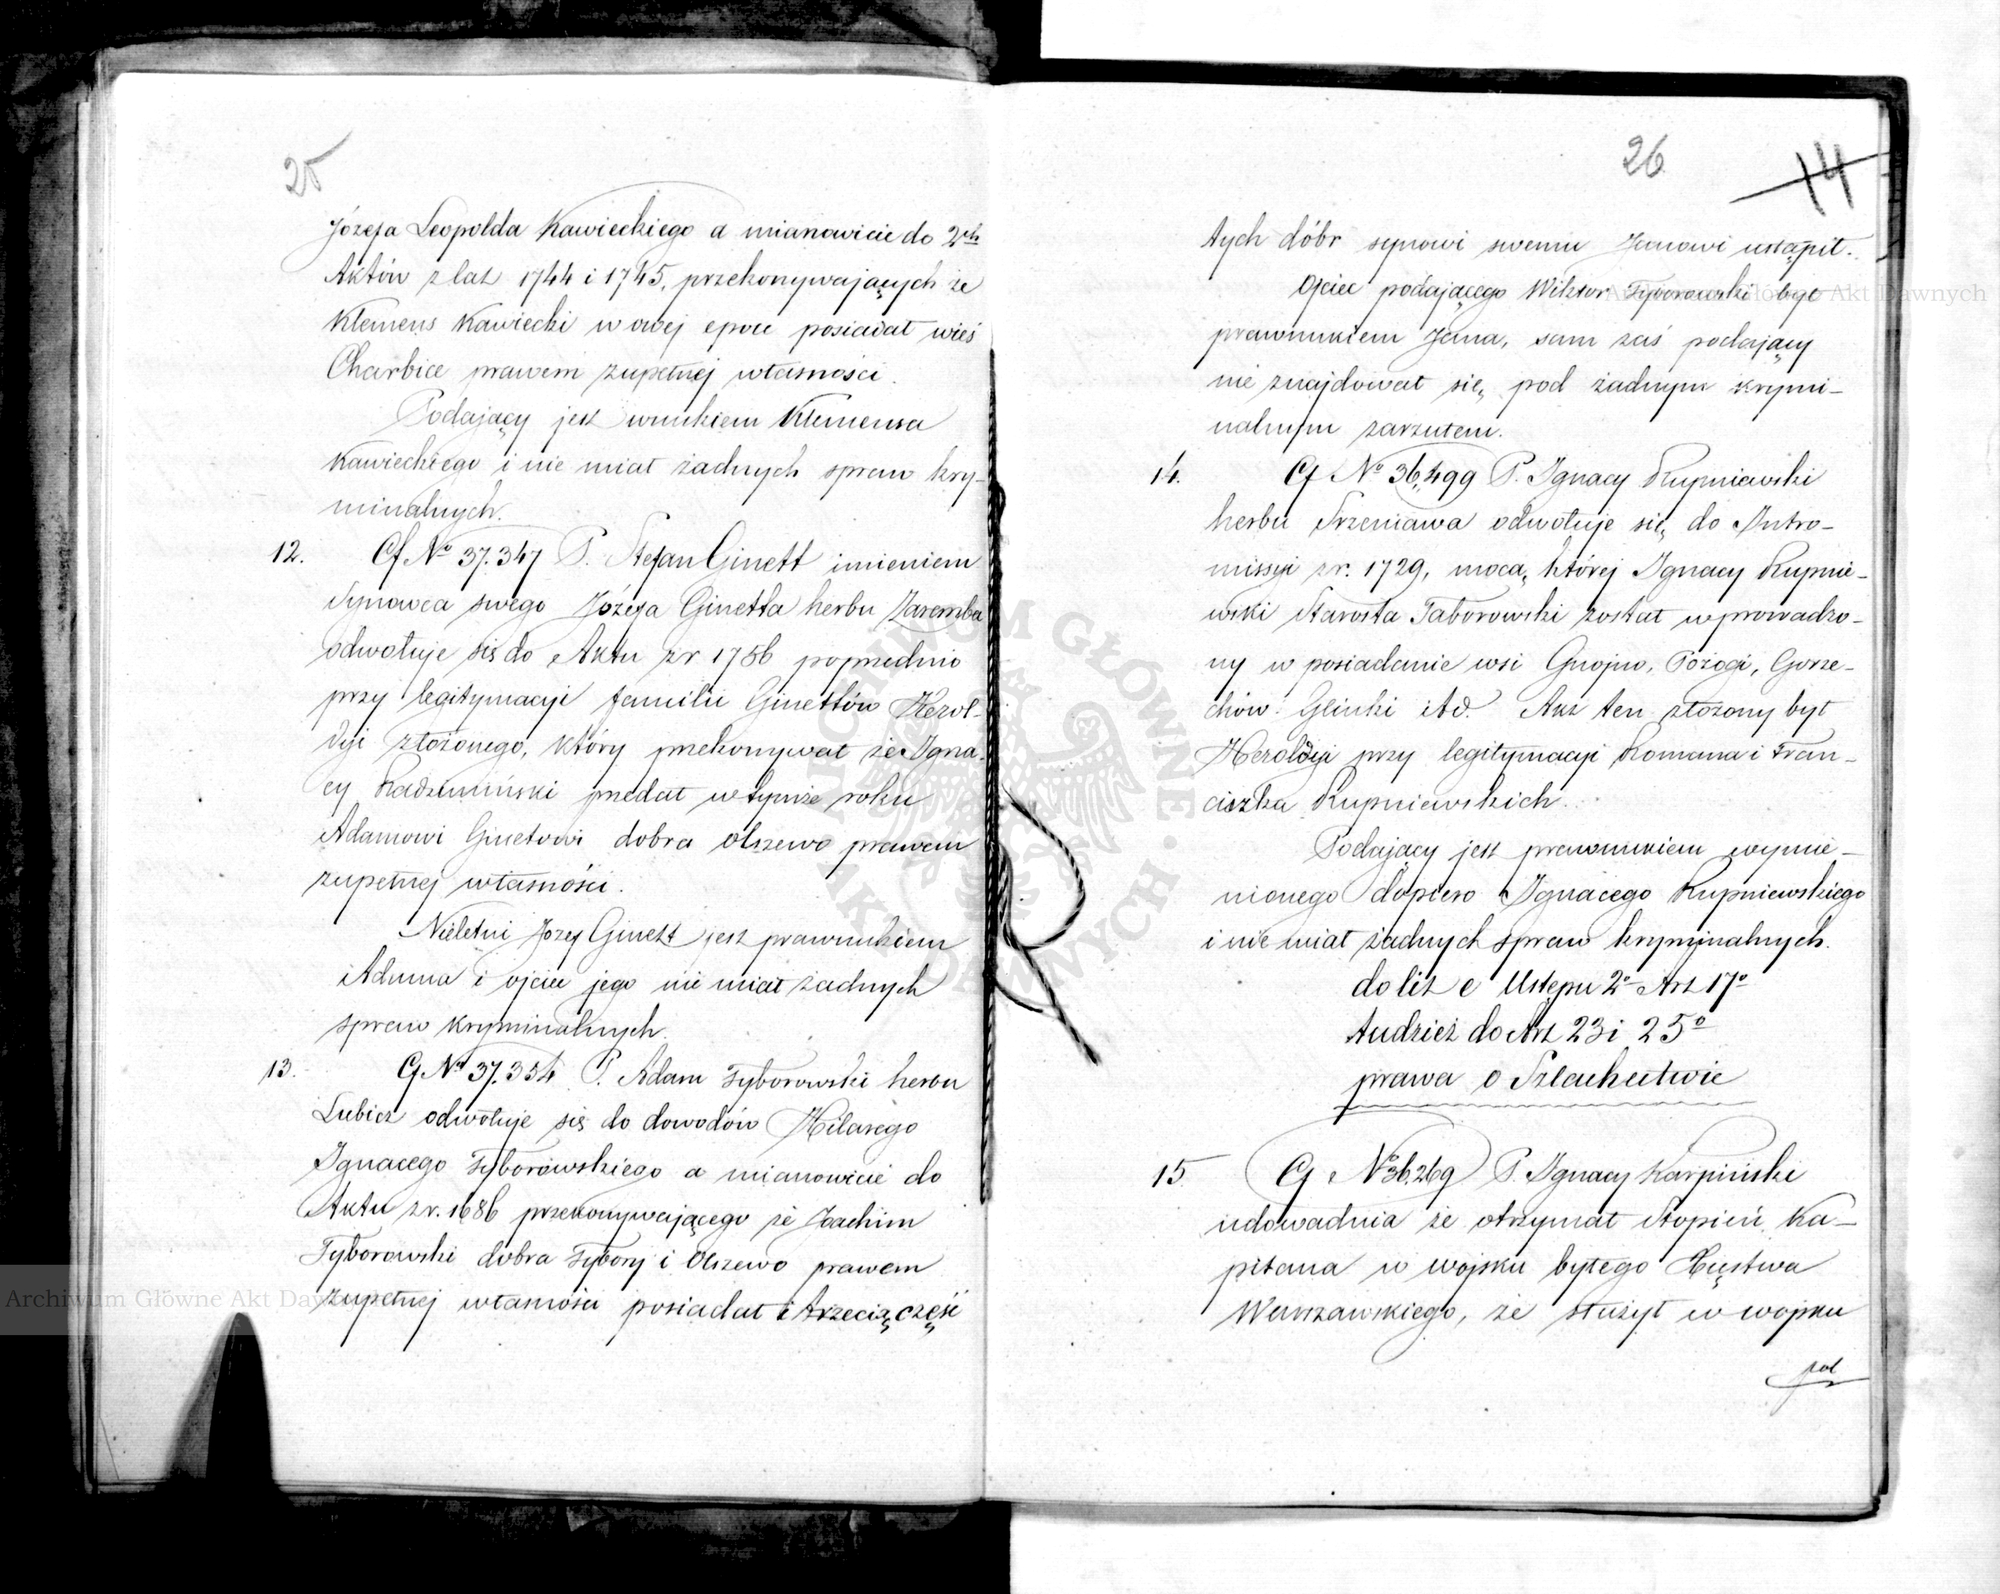 25
Józefa Leopolda Kawieckiego a mianowicie do 2ch
Aktów z lat 1744 i 1745, przekonywających że
Klemens Kawiecki w owej epoce posiadał wieś
Charbice prawem zupełnej własności.
Podający jest wnukiem Klemensa
Kawieckiego i nie miał żadnych spraw kry-
minalnych.
12. Cf No 37.347 P. Stefan Ginett imieniem
Synowca swego Józefa Ginetta herbu Zaremba
odwołuje się do Aktu z r 1786 poprzednio
przy legitymacyi familii Ginettów Herol-
dyi złożonego, który przekonywał że Igna-
cy Radzimiński przedał w tymże roku
Adamowi Ginetowi dobra Olszewo prawem
zupełnej własności.
Nieletni Józef Ginett jest prawnukiem
Adama i ojciec jego nie miał żadnych
spraw kryminalnych.
13. Cf No 37.354 P. Adam Tyborowski herbu
Lubicz odwołuje się do dowodów Hilarego
Ignacego Tyborowskiego a mianowicie do
Aktu z r. 1686 przekonywającego że Joachim
Tyborowski dobra Tybory i Olszewo prawem
zupełnej własności posiadał i trzecią część
26
14
tych dóbr synowi swemu Janowi ustąpił.
Ojciec podającego Wiktor Tyborowski był
prawnukiem Jana, sam zaś podający
nie znajdował się pod żadnym krymi-
nalnym zarzutem.
14. Cf No 36,499 P. Ignacy Rupniewski
herbu Srzeniawa odwołuje się do Intro-
missyi z r. 1729, mocą, której Ignacy Rupnie-
wski Starosta Taborowski został wprowadzo-
ny w posiadanie wsi Gnojno, Pożogi, Gorze-
chów Glinki itd. Akt ten złożony był
Heroldyi przy legitymacyi Romana i Fran-
ciszka Rupniewskich.
Podający jest prawnukiem wymie-
nionego dopiero Ignacego Rupniewskiego
i nie miał żadnych spraw kryminalnych.
do lit e Ustępu 2o Art 17o
tudzież do Art 23 i 25o
prawa o Szlachectwie
15. Cf No 36,269 P. Ignacy Karpiński
udowadnia że otrzymał stopień Ka-
pitana w wojsku byłego Xięstwa
Warszawskiego, że służył w wojsku
pol
Archiwum Główne Akt Dawnych
Archiwum Główne Akt Dawnych
ARCHIWUM GŁÓWNE AKT DAWNYCH